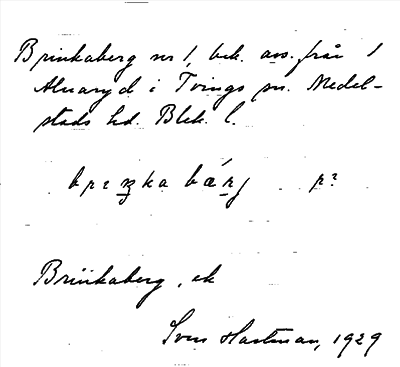 Brinkaberg nr 1, bek. avs. från 1
Alnaryd i Tvings sn. Medel-
stads hd. Blek. l.
Brinkaberg, ek
Sven Hartman, 1929